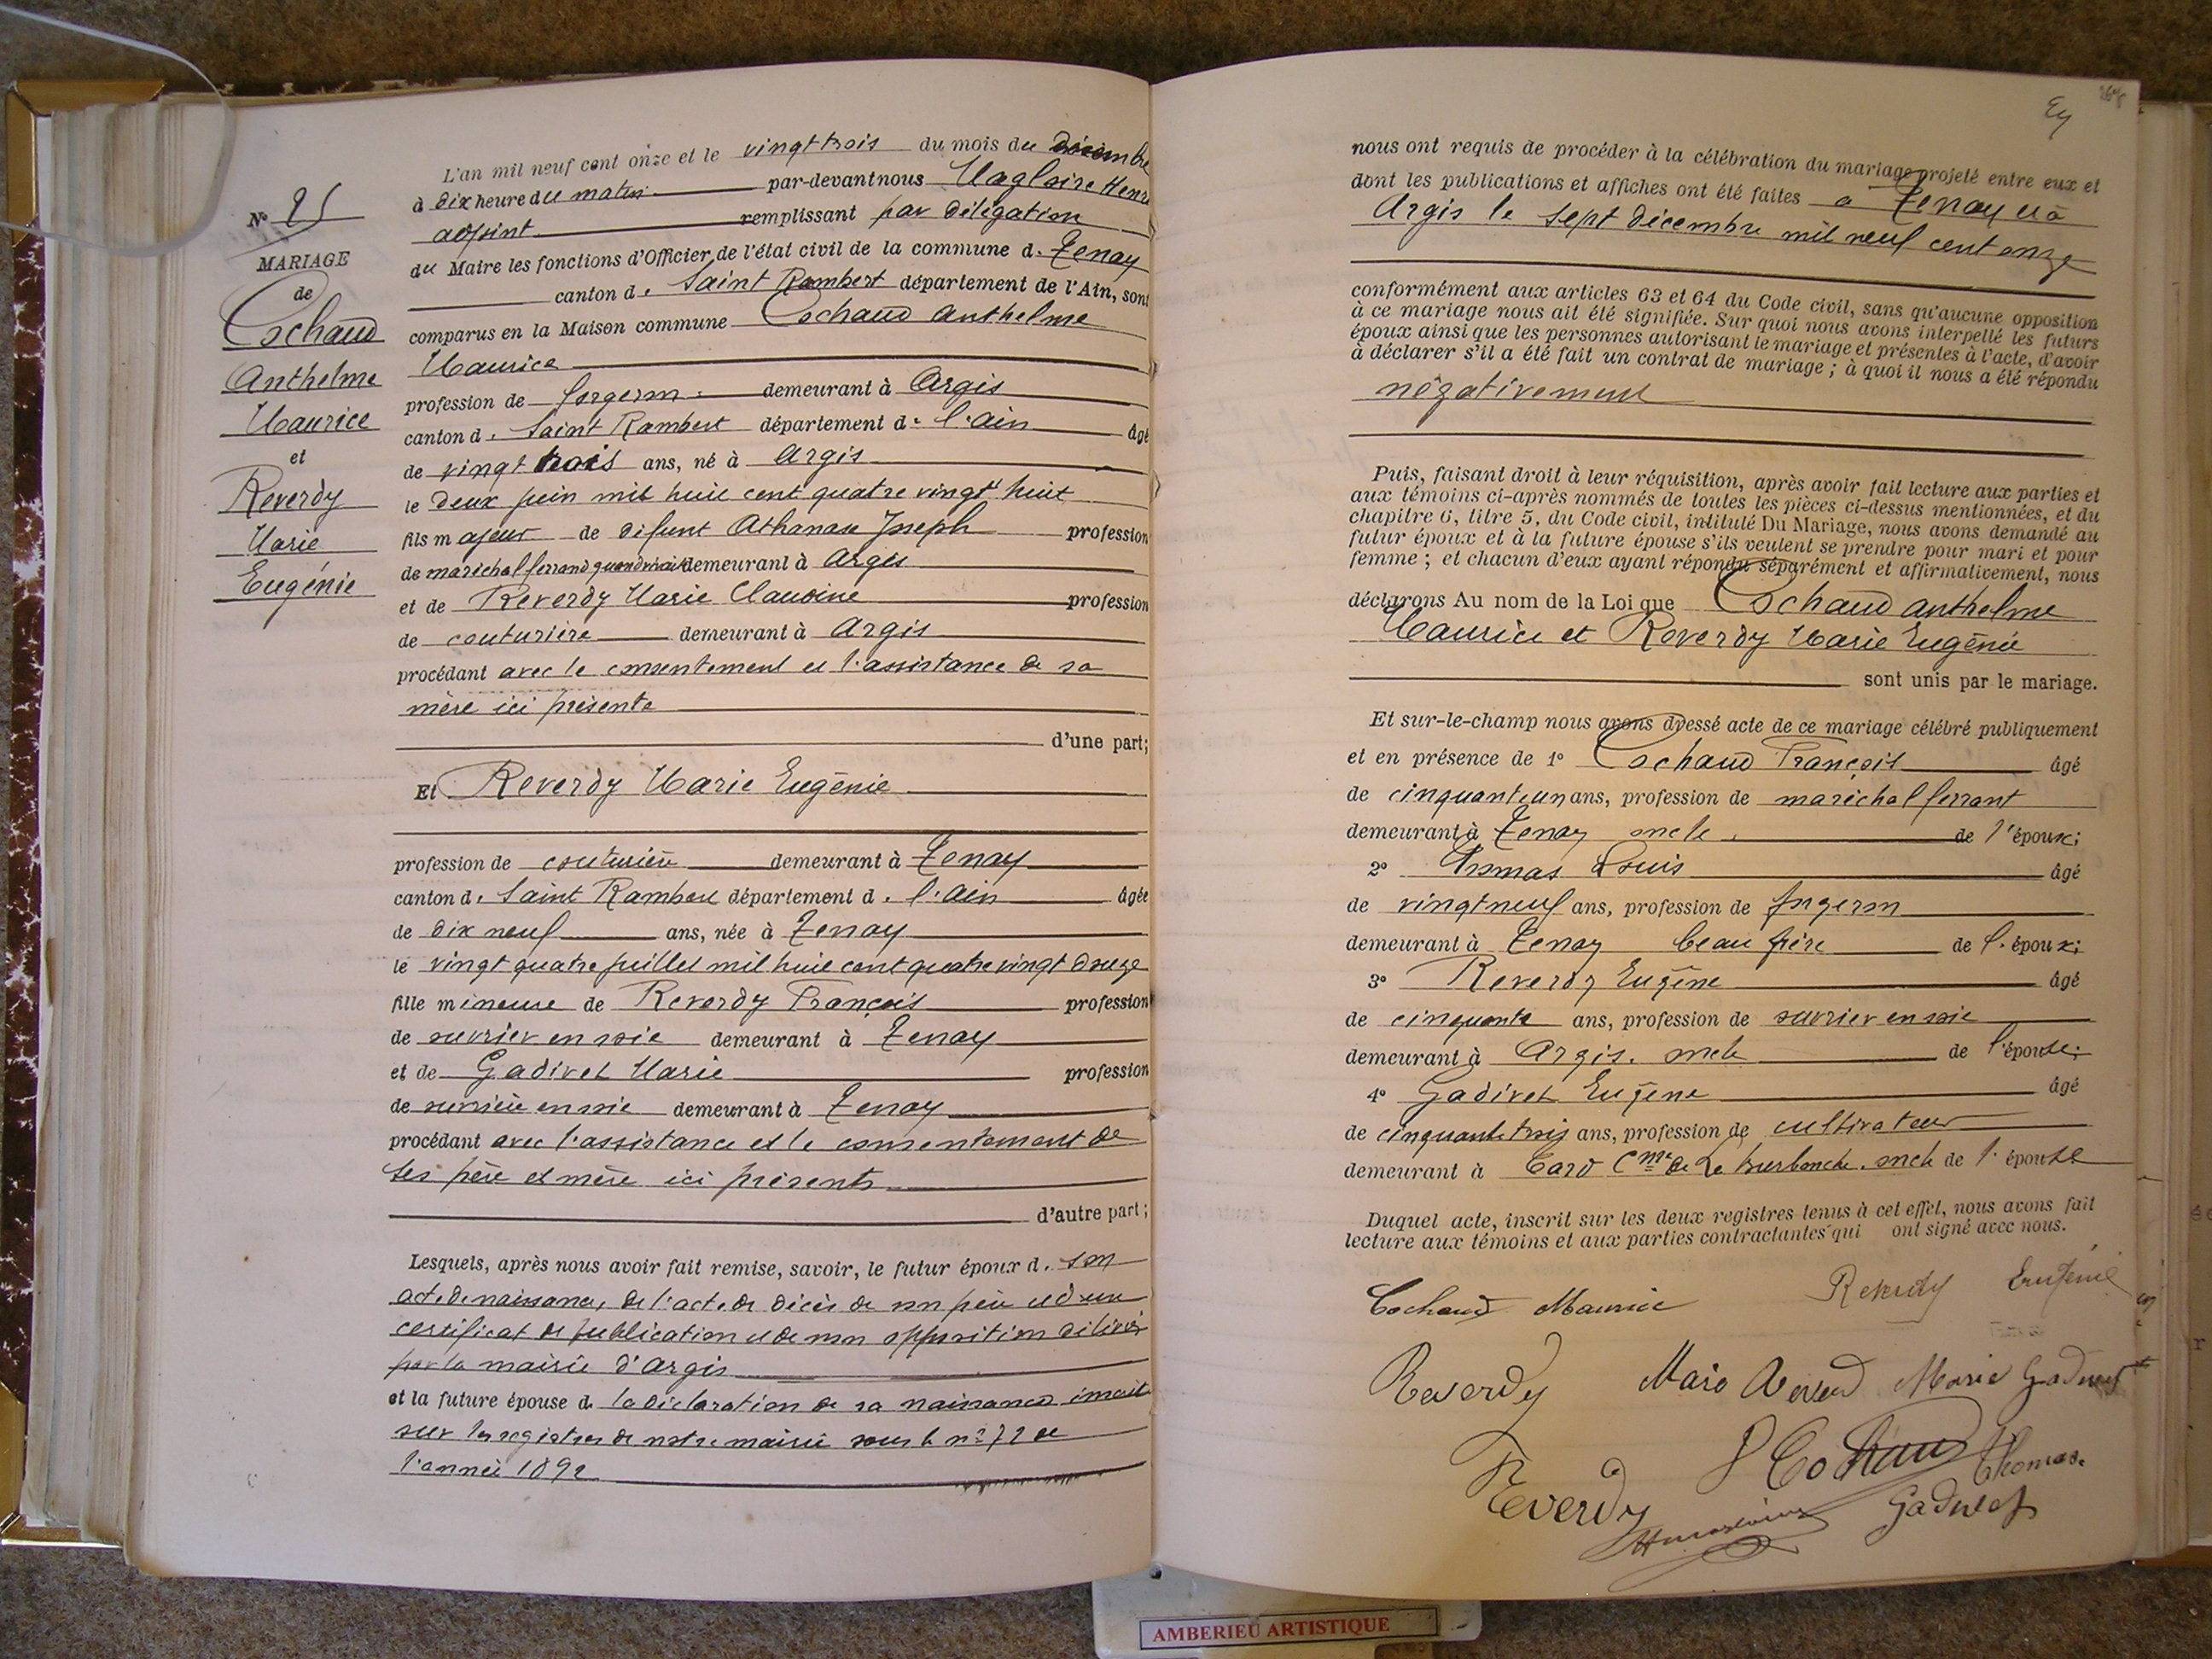 L'an mil neuf cent onze et le vingt trois du mois du décembre
à dix heure du matin par-devant nous Magloire Henri
adjoint remplissant par délégation
du Maire les fonctions d'Officier de l'état civil de la commune d. Tenay
canton d. Saint Rambert département de l'Ain, sont
comparus en la Maison commune Cochaud Anthelme
Maurice
profession de forgeron demeurant à Argis
canton d. Saint Rambert département d. l'Ain âgé
de vingt trois ans, né à Argis
le deux juin mil huit cent quatre vingt huit
fils majeur de défunt Athanase Joseph profession
de maréchal ferrand quand vivait demeurant à Argis
et de Reverdy Marie Claudine profession
de couturière demeurant à Argis
procédant avec le consentement et l'assistance de sa
mère ici présente
d'une part;
Et Reverdy Marie Eugénie
profession de couturière demeurant à Tenay
canton d. Saint Rambert département d. l'Ain âgée
de dix neuf ans, née à Tenay
le vingt quatre juillet mil huit cent quatre vingt douze
fille mineure de Reverdy François profession
de ouvrier en soie demeurant à Tenay
et de Gadivet Marie profession
de ouvrière en soie demeurant à Tenay
procédant avec l'assistance et le consentement de
ses père et mère ici présents
d'autre part;
Lesquels, après nous avoir fait remise, savoir, le futur époux d. son
acte de naissance, de l'acte de décès de son père et d'un
certificat de publication et de non opposition délivré
par la mairie d'Argis
et la future épouse d. la déclaration de sa naissance inscrite
sur les registres de notre mairie sous le n° 72 de
l'année 1892
No 25
MARIAGE
de
Cochaud
Anthelme
Maurice
et
Reverdy
Marie
Eugénie
268
nous ont requis de procéder à la célébration du mariage projeté entre eux et
dont les publications et affiches ont été faites à Tenay et à
Argis le sept décembre mil neuf cent onze
conformément aux articles 63 et 64 du Code civil, sans qu'aucune opposition
à ce mariage nous ait été signifiée. Sur quoi nous avons interpellé les futurs
époux ainsi que les personnes autorisant le mariage et présentes à l'acte, d'avoir
à déclarer s'il a été fait un contrat de mariage ; à quoi il nous a été répondu
négativement
Puis, faisant droit à leur réquisition, après avoir fait lecture aux parties et
aux témoins ci-après nommés de toutes les pièces ci-dessus mentionnées, et du
chapitre 6, titre 5, du Code civil, intitulé Du Mariage, nous avons demandé au
futur époux et à la future épouse s'ils veulent se prendre pour mari et pour
femme ; et chacun d'eux ayant répondu séparément et affirmativement, nous
déclarons Au nom de la Loi que Cochaud Anthelme
Maurice et Reverdy Marie Eugénie
sont unis par le mariage.
Et sur-le-champ nous avons dressé acte de ce mariage célébré publiquement
et en présence de 1o Cochaud François âgé
de cinquante un ans, profession de maréchal ferrant
demeurant à Tenay oncle de l'époux;
2o Thomas Louis âgé
de vingt neuf ans, profession de forgeron
demeurant à Tenay beau frère de l'époux;
3o Reverdy Eugène âgé
de cinquante ans, profession de ouvrier en soie
demeurant à Argis. oncle de l'épouse;
4o Gadivet Eugène âgé
de cinquante trois ans, profession de cultivateur
demeurant à Cme de La Burbanche. oncle de l'épouse
Duquel acte, inscrit sur les deux registres tenus à cet effet, nous avons fait
lecture aux témoins et aux parties contractantes qui ont signé avec nous.
Cochaud Maurice Reverdy Eugénie
Reverdy Marie Reverdy Marie Gadivet
F Cochaud Thomas
Reverdy Gadivet
AMBERIEU ARTISTIQUE